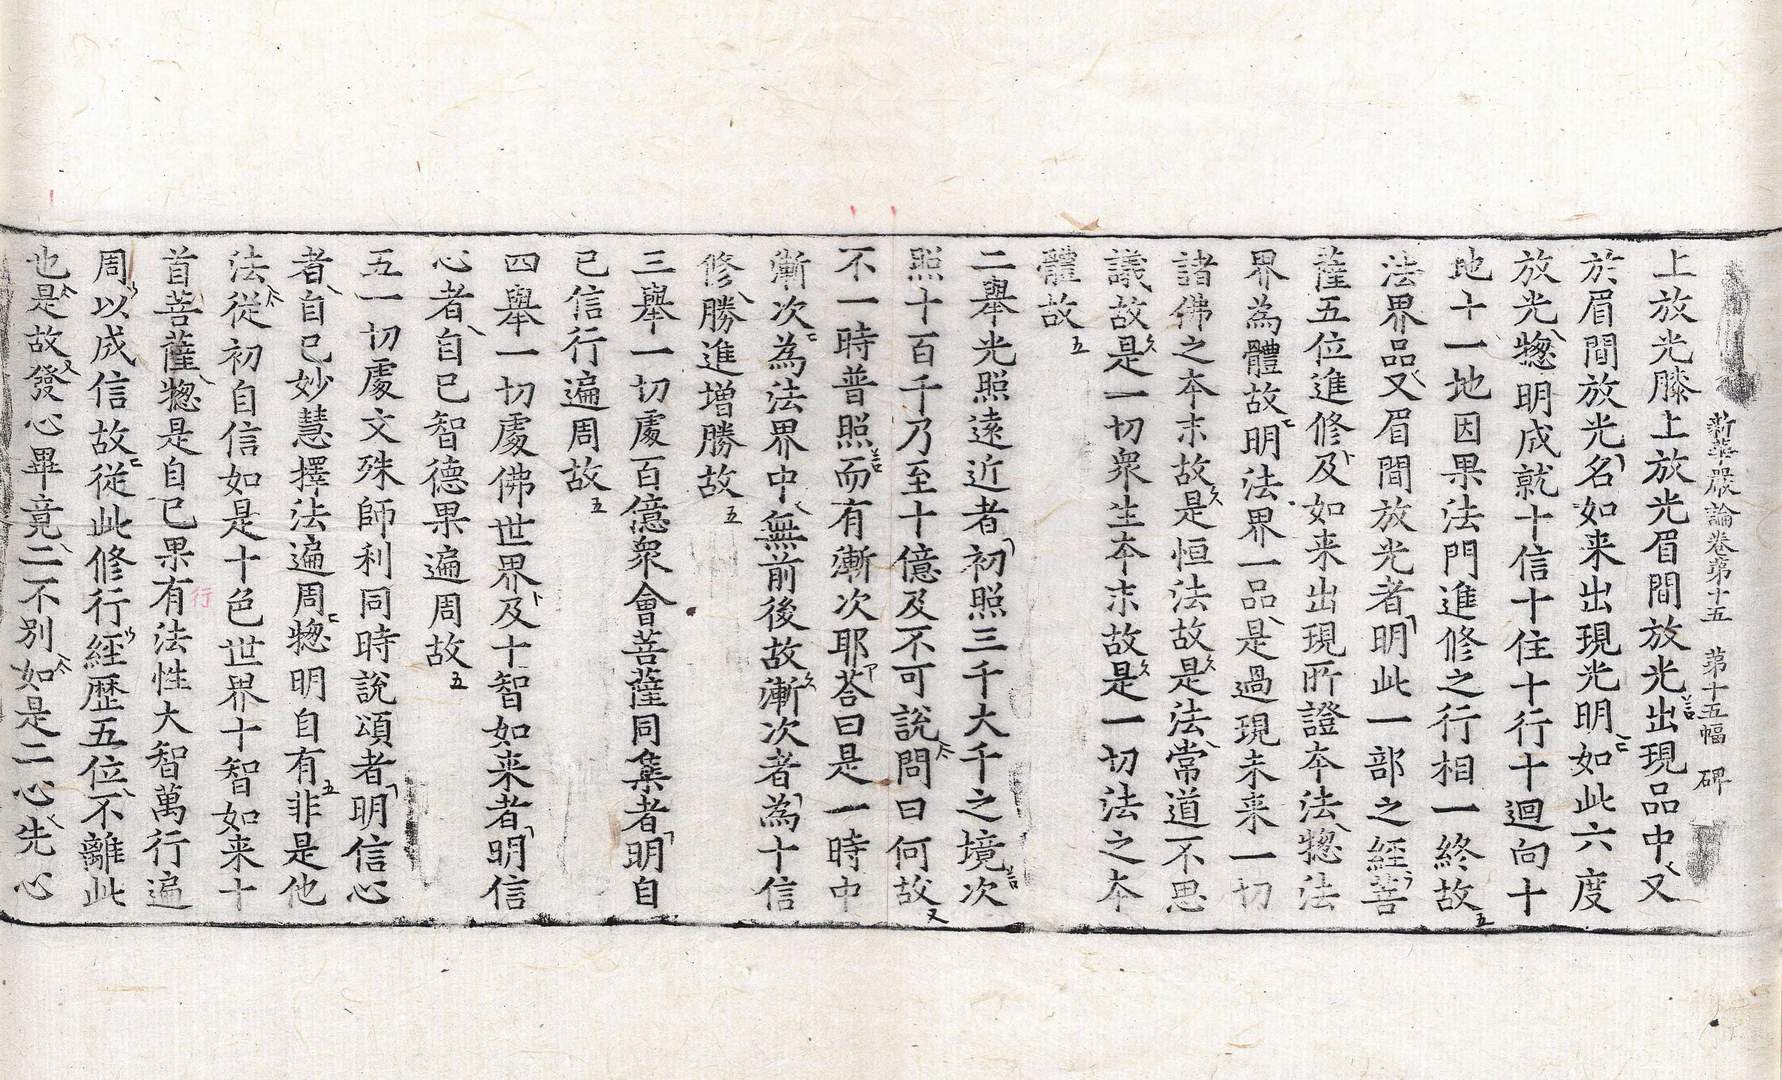 新華嚴論卷第十五　第十五幅　碑
上放光膝上放光眉間放光出現品中又
於眉間放光名如来出現光明如此六度
放光惣明成就十信十住十行十迴向十
地十一地因果法門進修之行相一終故
法界品又眉間放光者明此一部之經菩
薩五位進修及如来出現所證夲法惣法
界為體故明法界一品是過現未来一切
諸佛之夲末故是恒法故是法常道不思
議故是一切衆生夲末故是一切法之夲
體故
二舉光照遠近者初照三千大千之境次
照十百千乃至十億及不可說問曰何故
不一時普照而有漸次耶荅曰是一時中
漸次為法界中無前後故漸次者為十信
修勝進增勝故
三舉一切處百億衆會菩薩同集者明自
己信行遍周故
四舉一切處佛世界及十智如来者明信
心者自己智德果遍周故
五一切處文殊師利同時說頌者明信心
者自己妙慧擇法遍周惣明自有非是他
法從初自信如是十色世界十智如来十
首菩薩惣是自己果有法性大智萬行遍
行
周以成信故從此修行經歷五位不離此
也是故發心畢竟二不别如是二心先心